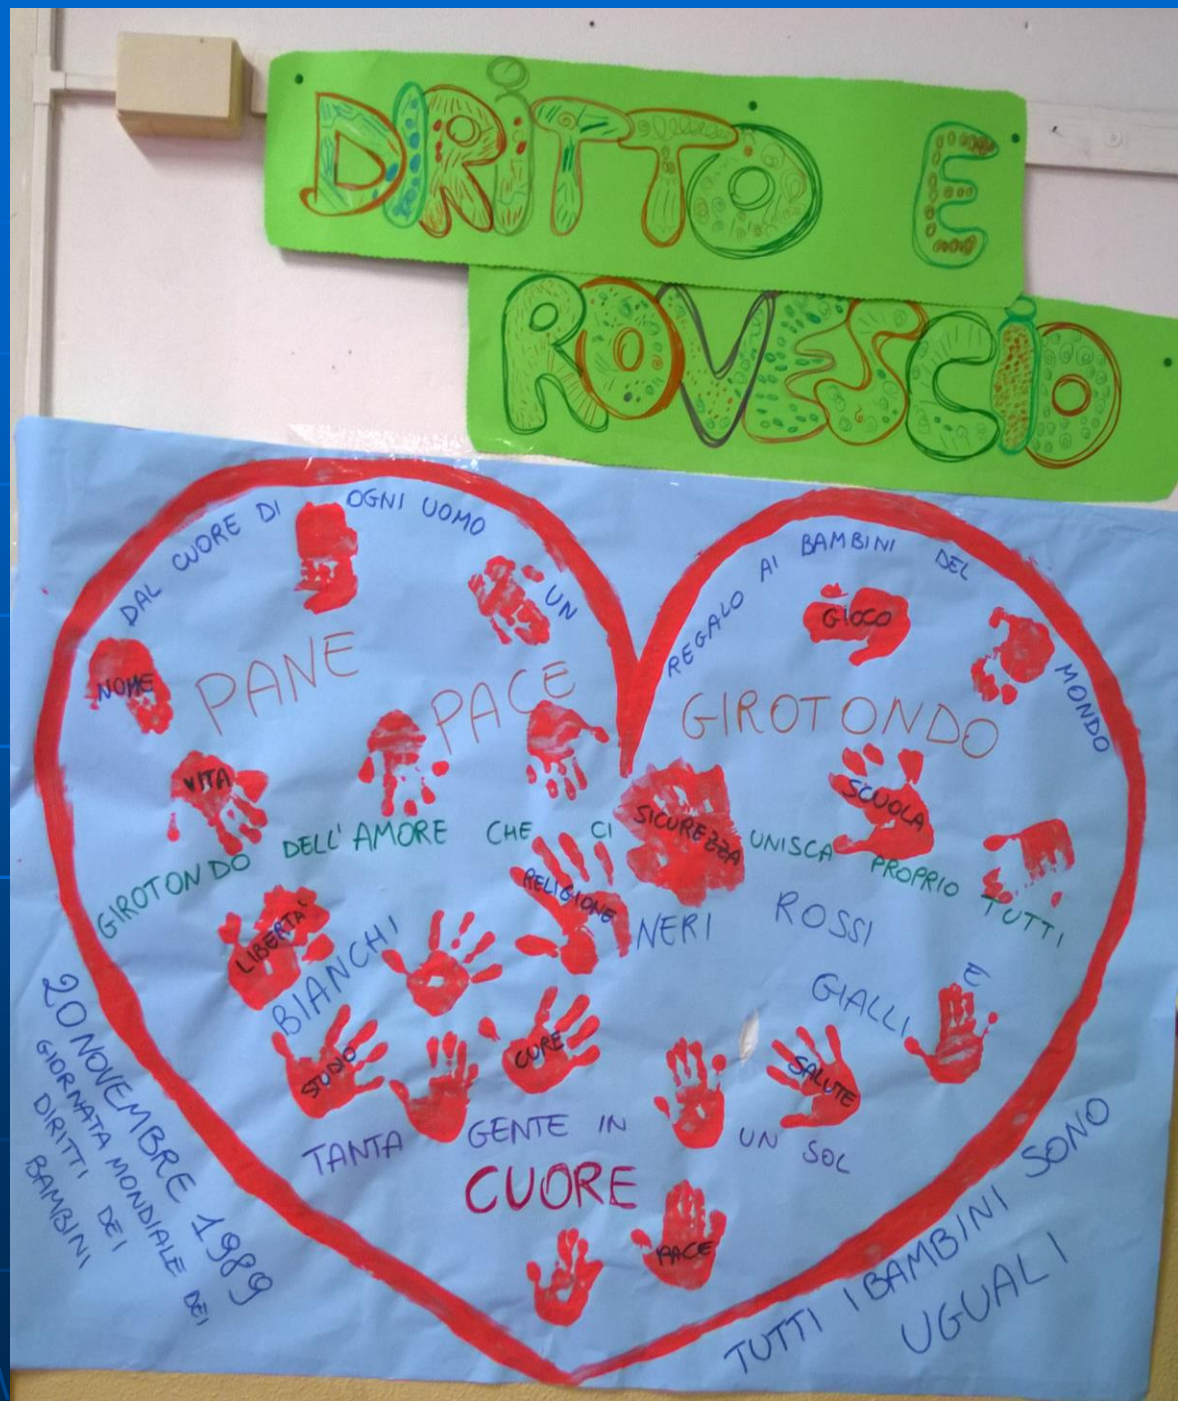 DIRITTO E
ROVESCIO
DAL CUORE DI OGNI UOMO UN REGALO AI BAMBINI DEL MONDO
NOME
GIOCO
PANE PACE GIROTONDO
VITA
SICUREZZA
SCUOLA
GIROTONDO DELL'AMORE CHE CI UNISCA PROPRIO TUTTI
LIBERTA'
RELIGIONE
BIANCHI NERI ROSSI GIALLI E
STUDIO
CURE
SALUTE
TANTA GENTE IN UN SOL
CUORE
PACE
20 NOVEMBRE 1989
GIORNATA MONDIALE DEI
DIRITTI DEI
BAMBINI
TUTTI I BAMBINI SONO
UGUALI